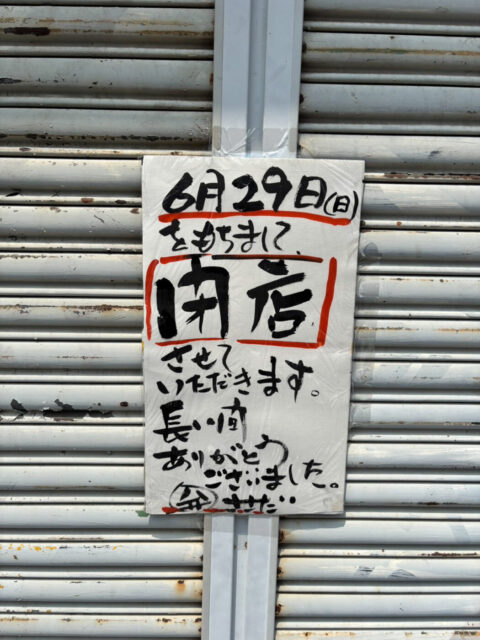 6月29日(日)
をもちまして、
閉店
させて
いただきます。
長い間
ありがとう
ございました。